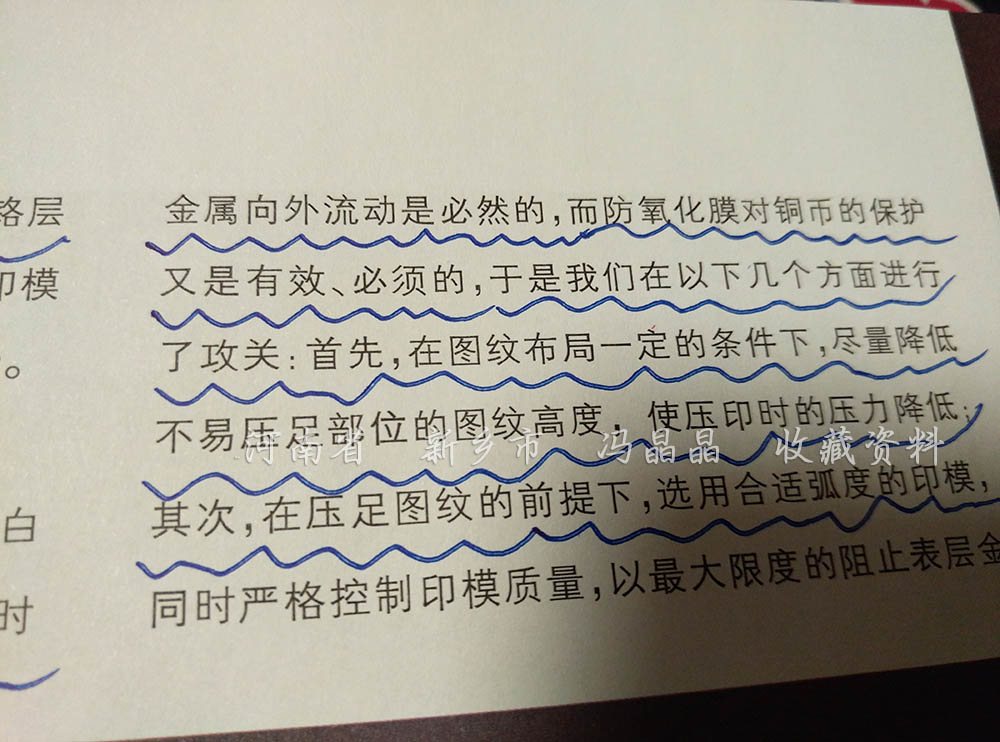 格层
印模
。
白
时
金属向外流动是必然的,而防氧化膜对铜币的保护
又是有效、必须的,于是我们在以下几个方面进行
了攻关:首先,在图纹布局一定的条件下,尽量降低
不易压足部位的图纹高度,使压印时的压力降低;
河南省 新乡市 冯晶晶 收藏资料
其次,在压足图纹的前提下,选用合适弧度的印模,
同时严格控制印模质量,以最大限度的阻止表层金